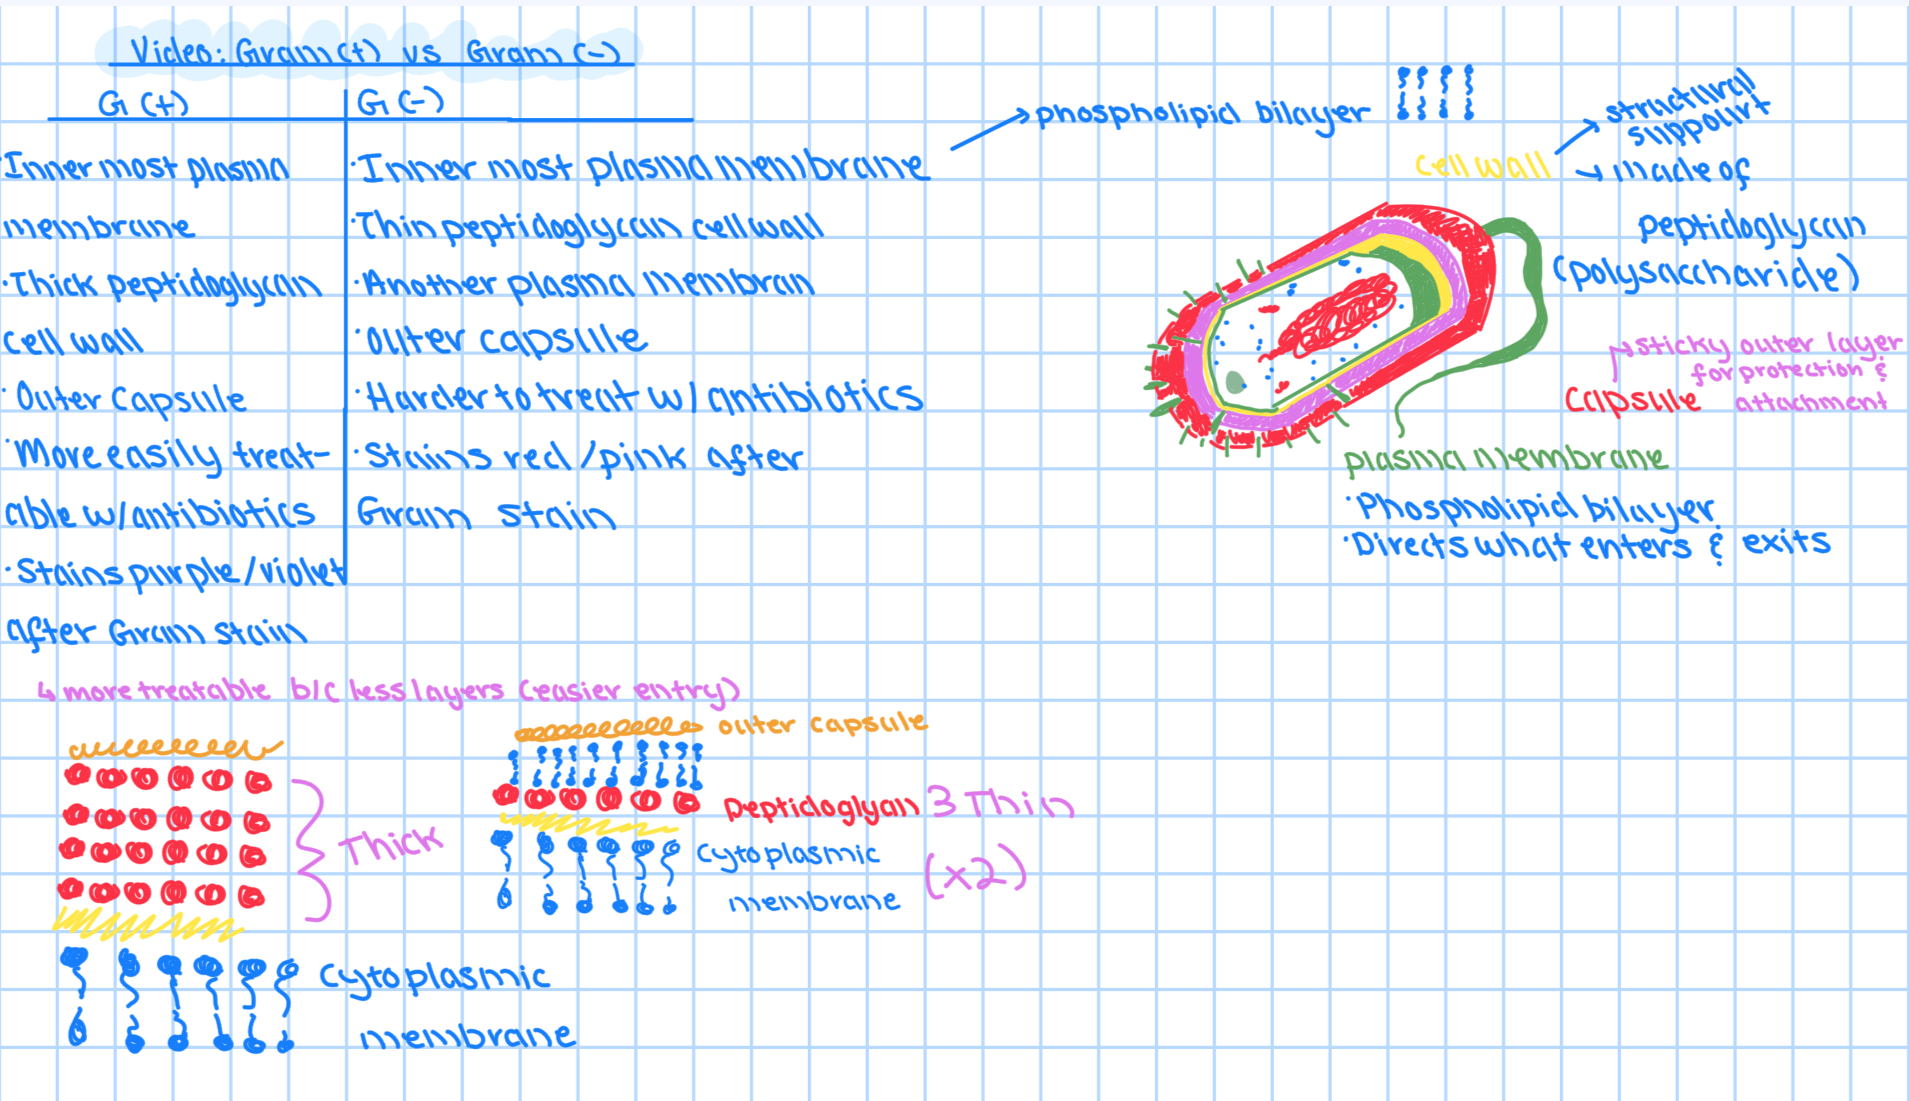 Video: Gram (+) vs Gram (-)
G (+)
Inner most plasma
membrane
·Thick peptidoglycan
cell wall
·Outer Capsule
·More easily treat-
able w/antibiotics
·Stains purple/violet
after Gram stain
↳ more treatable b/c less layers (easier entry)
G (-)
·Inner most plasma membrane
·Thin peptidoglycan cell wall
·Another plasma membran
·Outer capsule
·Harder to treat w/ antibiotics
·Stains red/pink after
Gram stain
→phospholipid bilayer
cell wall
→ structural
support
→ made of
peptidoglycan
(polysaccharide)
sticky outer layer
for protection &
attachment
Capsule
plasma membrane
·Phospholipid bilayer
·Directs what enters & exits
Thick
Cytoplasmic
membrane
outer capsule
peptidoglyan } Thin
cytoplasmic
membrane
(x2)